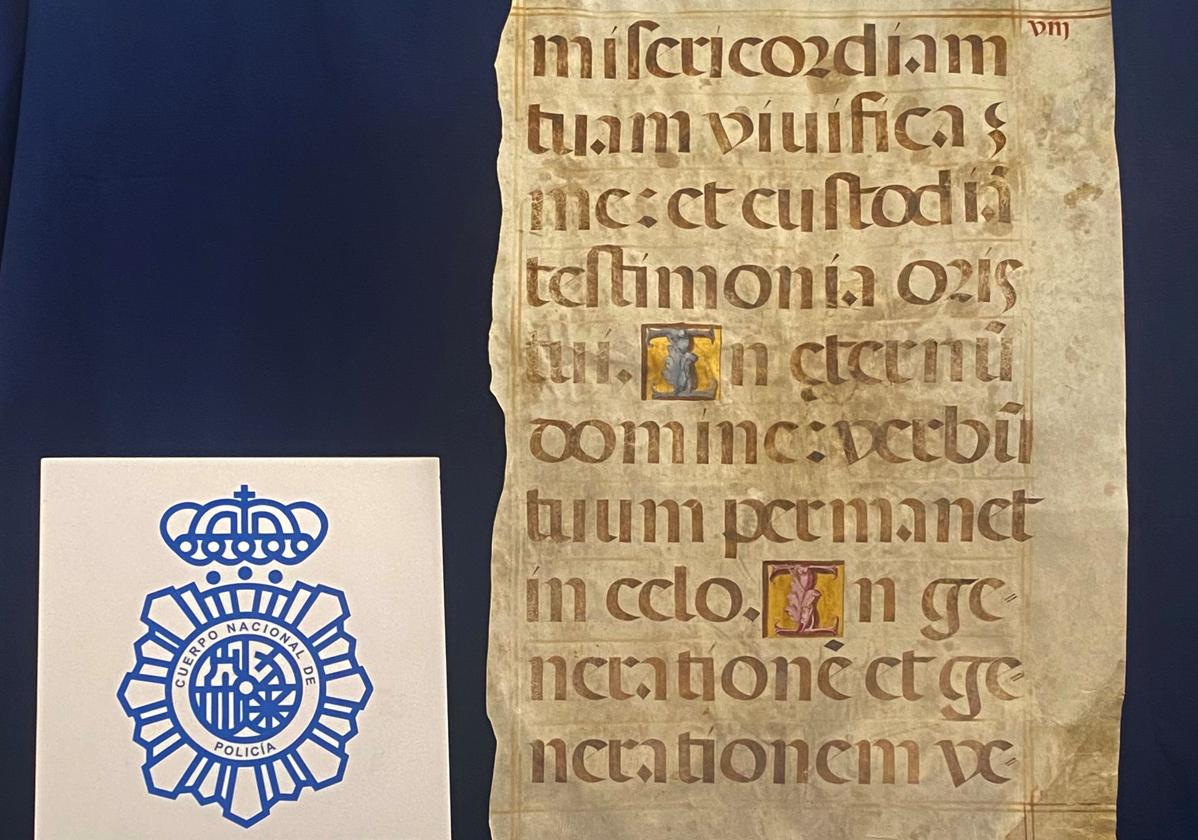 viij
misericordiam
tuam viuifica
me: et custodiā
testimonia oris
tui. In ęternū
domine: verbū
tuum permanet
in celo. In ge-
nerationē et ge-
nerationem ve-
CUERPO NACIONAL DE
POLICÍA